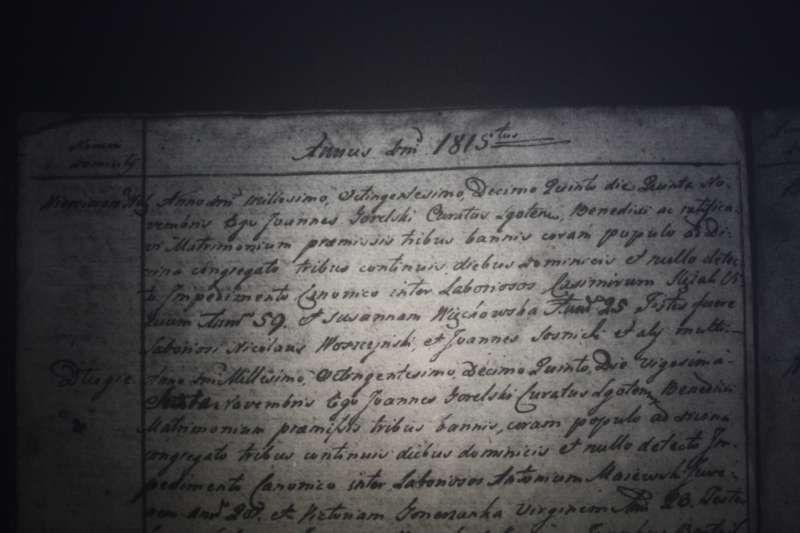 Annus dni 1815tus
Anno dni millesimo, Octingentesimo, Decimo Quinto die Quinta No-
vembris Ego Joannes Gorelski Curatus Lgoten, Benedixi ac ratifica-
vi Matrimonium premissis tribus bannis coram populo ad di-
vina congregato tribus continuis diebus dominicis et nullo detec-
to Impedimento Canonico inter Laboriosos Casimirum
Annor 59. et Susannam Więchowska 25 Testes fuere
Laboriosi Nicolaus et Joannes Sosnicki et alij multi
Długie
Anno dni Millesimo, Octingentesimo, Decimo Quinto, Die Vigesima
Sexta Novembris Ego Joannes Gorelski Curatus Lgoten, Benedixi
Matrimonium premissis tribus bannis, coram populo ad divina
congregato tribus continuis diebus dominicis et nullo detecto Im-
pedimento Canonico inter Laboriosos Antonium Majewski Juve-
nem et Victoriam Virginem 23. Testes